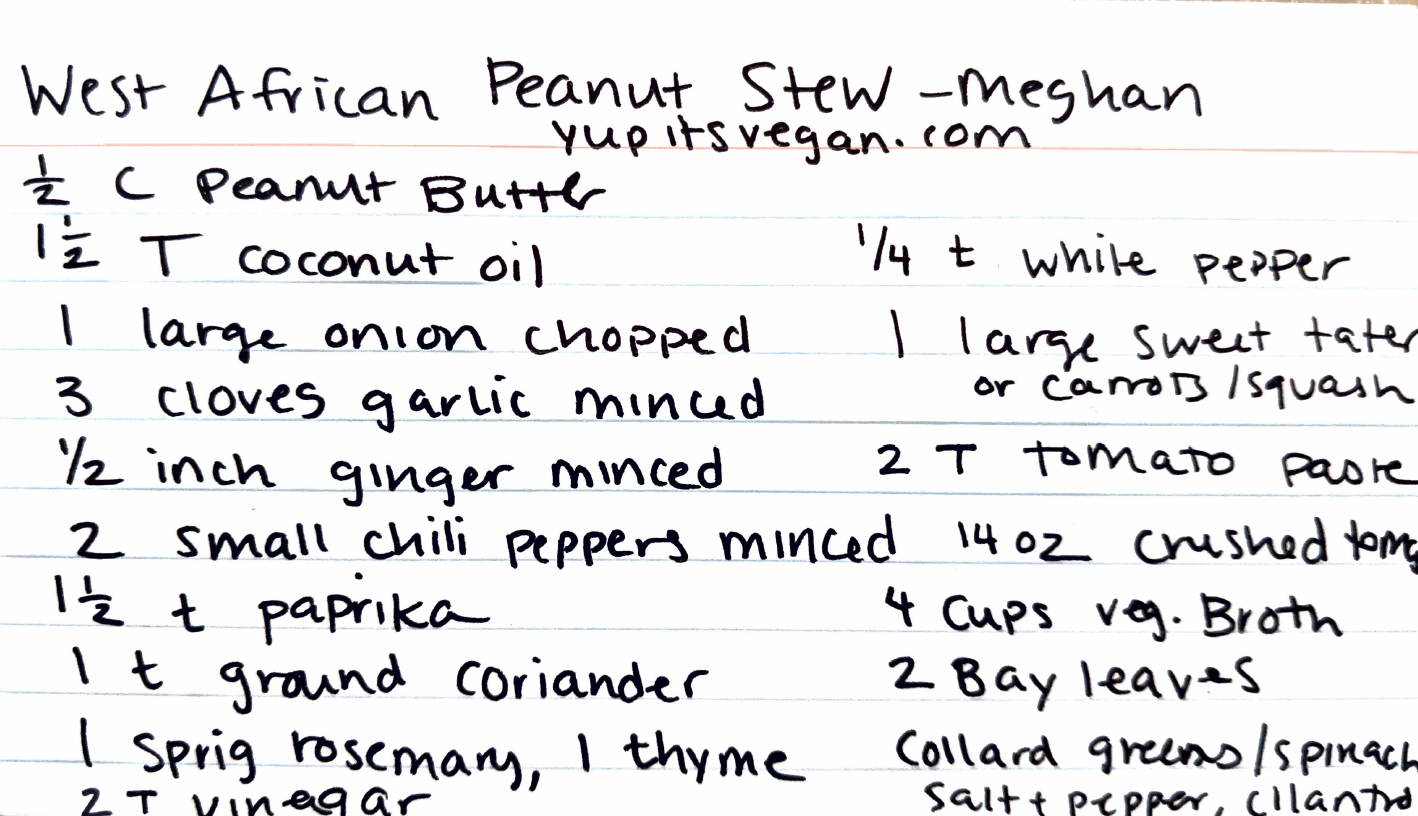 West African Peanut Stew - Meghan
yupitsvegan.com
1/2 C Peanut Butter
1 1/2 T coconut oil
1 large onion chopped
3 cloves garlic minced
1/2 inch ginger minced
2 small chili peppers minced
1 1/2 t paprika
1 t ground coriander
1 sprig rosemary, 1 thyme
2 T vinegar
1/4 t white pepper
1 large sweet tater
or carrots/squash
2 T tomato paste
14 oz crushed toms
4 Cups veg. Broth
2 Bay leaves
Collard greens/spinach
salt + pepper, cilantro